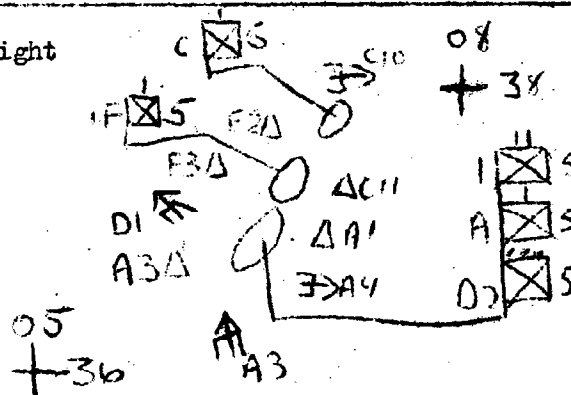 ight
C 5
C10
08
38
F 5
F2Δ
F3Δ
ΔC11
1 5
D1
ΔA1
A 5
A3Δ
A4
D 5
05
36
A3